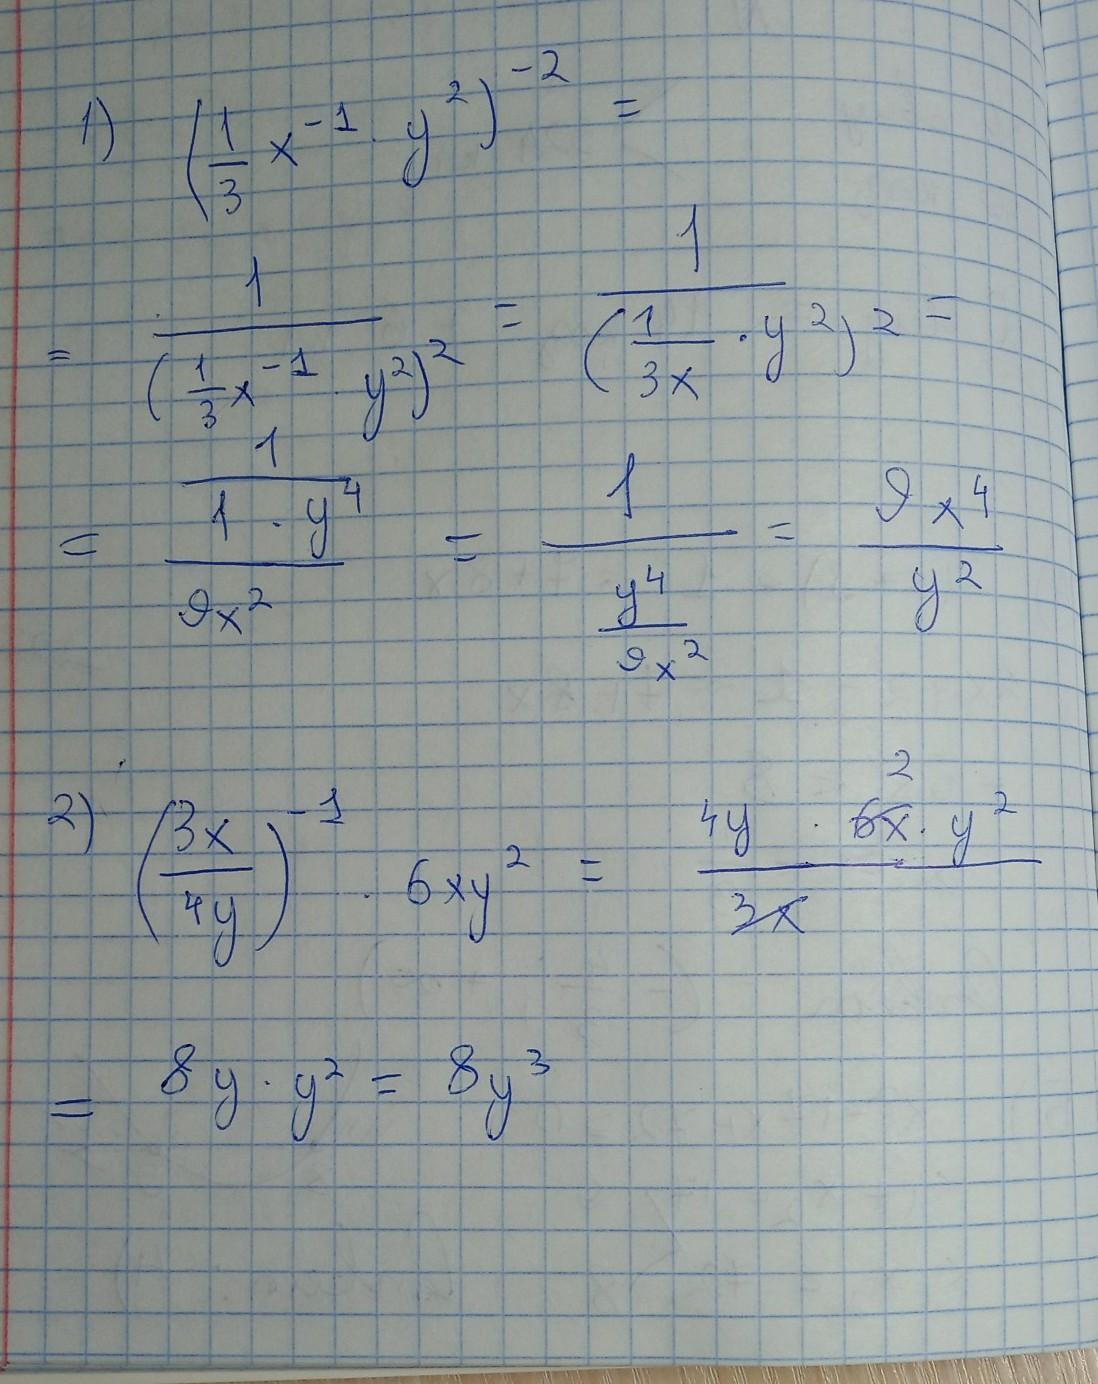 1) (1/3 x^-1 · y^2)^-2 =
= 1/((1/3 x^-1 · y^2)^2) = 1/((1/3x · y^2)^2) =
= 1/((1 · y^4)/(9x^2)) = 1/(y^4/(9x^2)) = 9x^4/y^2
2) (3x/4y)^-1 · 6xy^2 = (4y · 6x · y^2)/3x 2
= 8y · y^2 = 8y^3